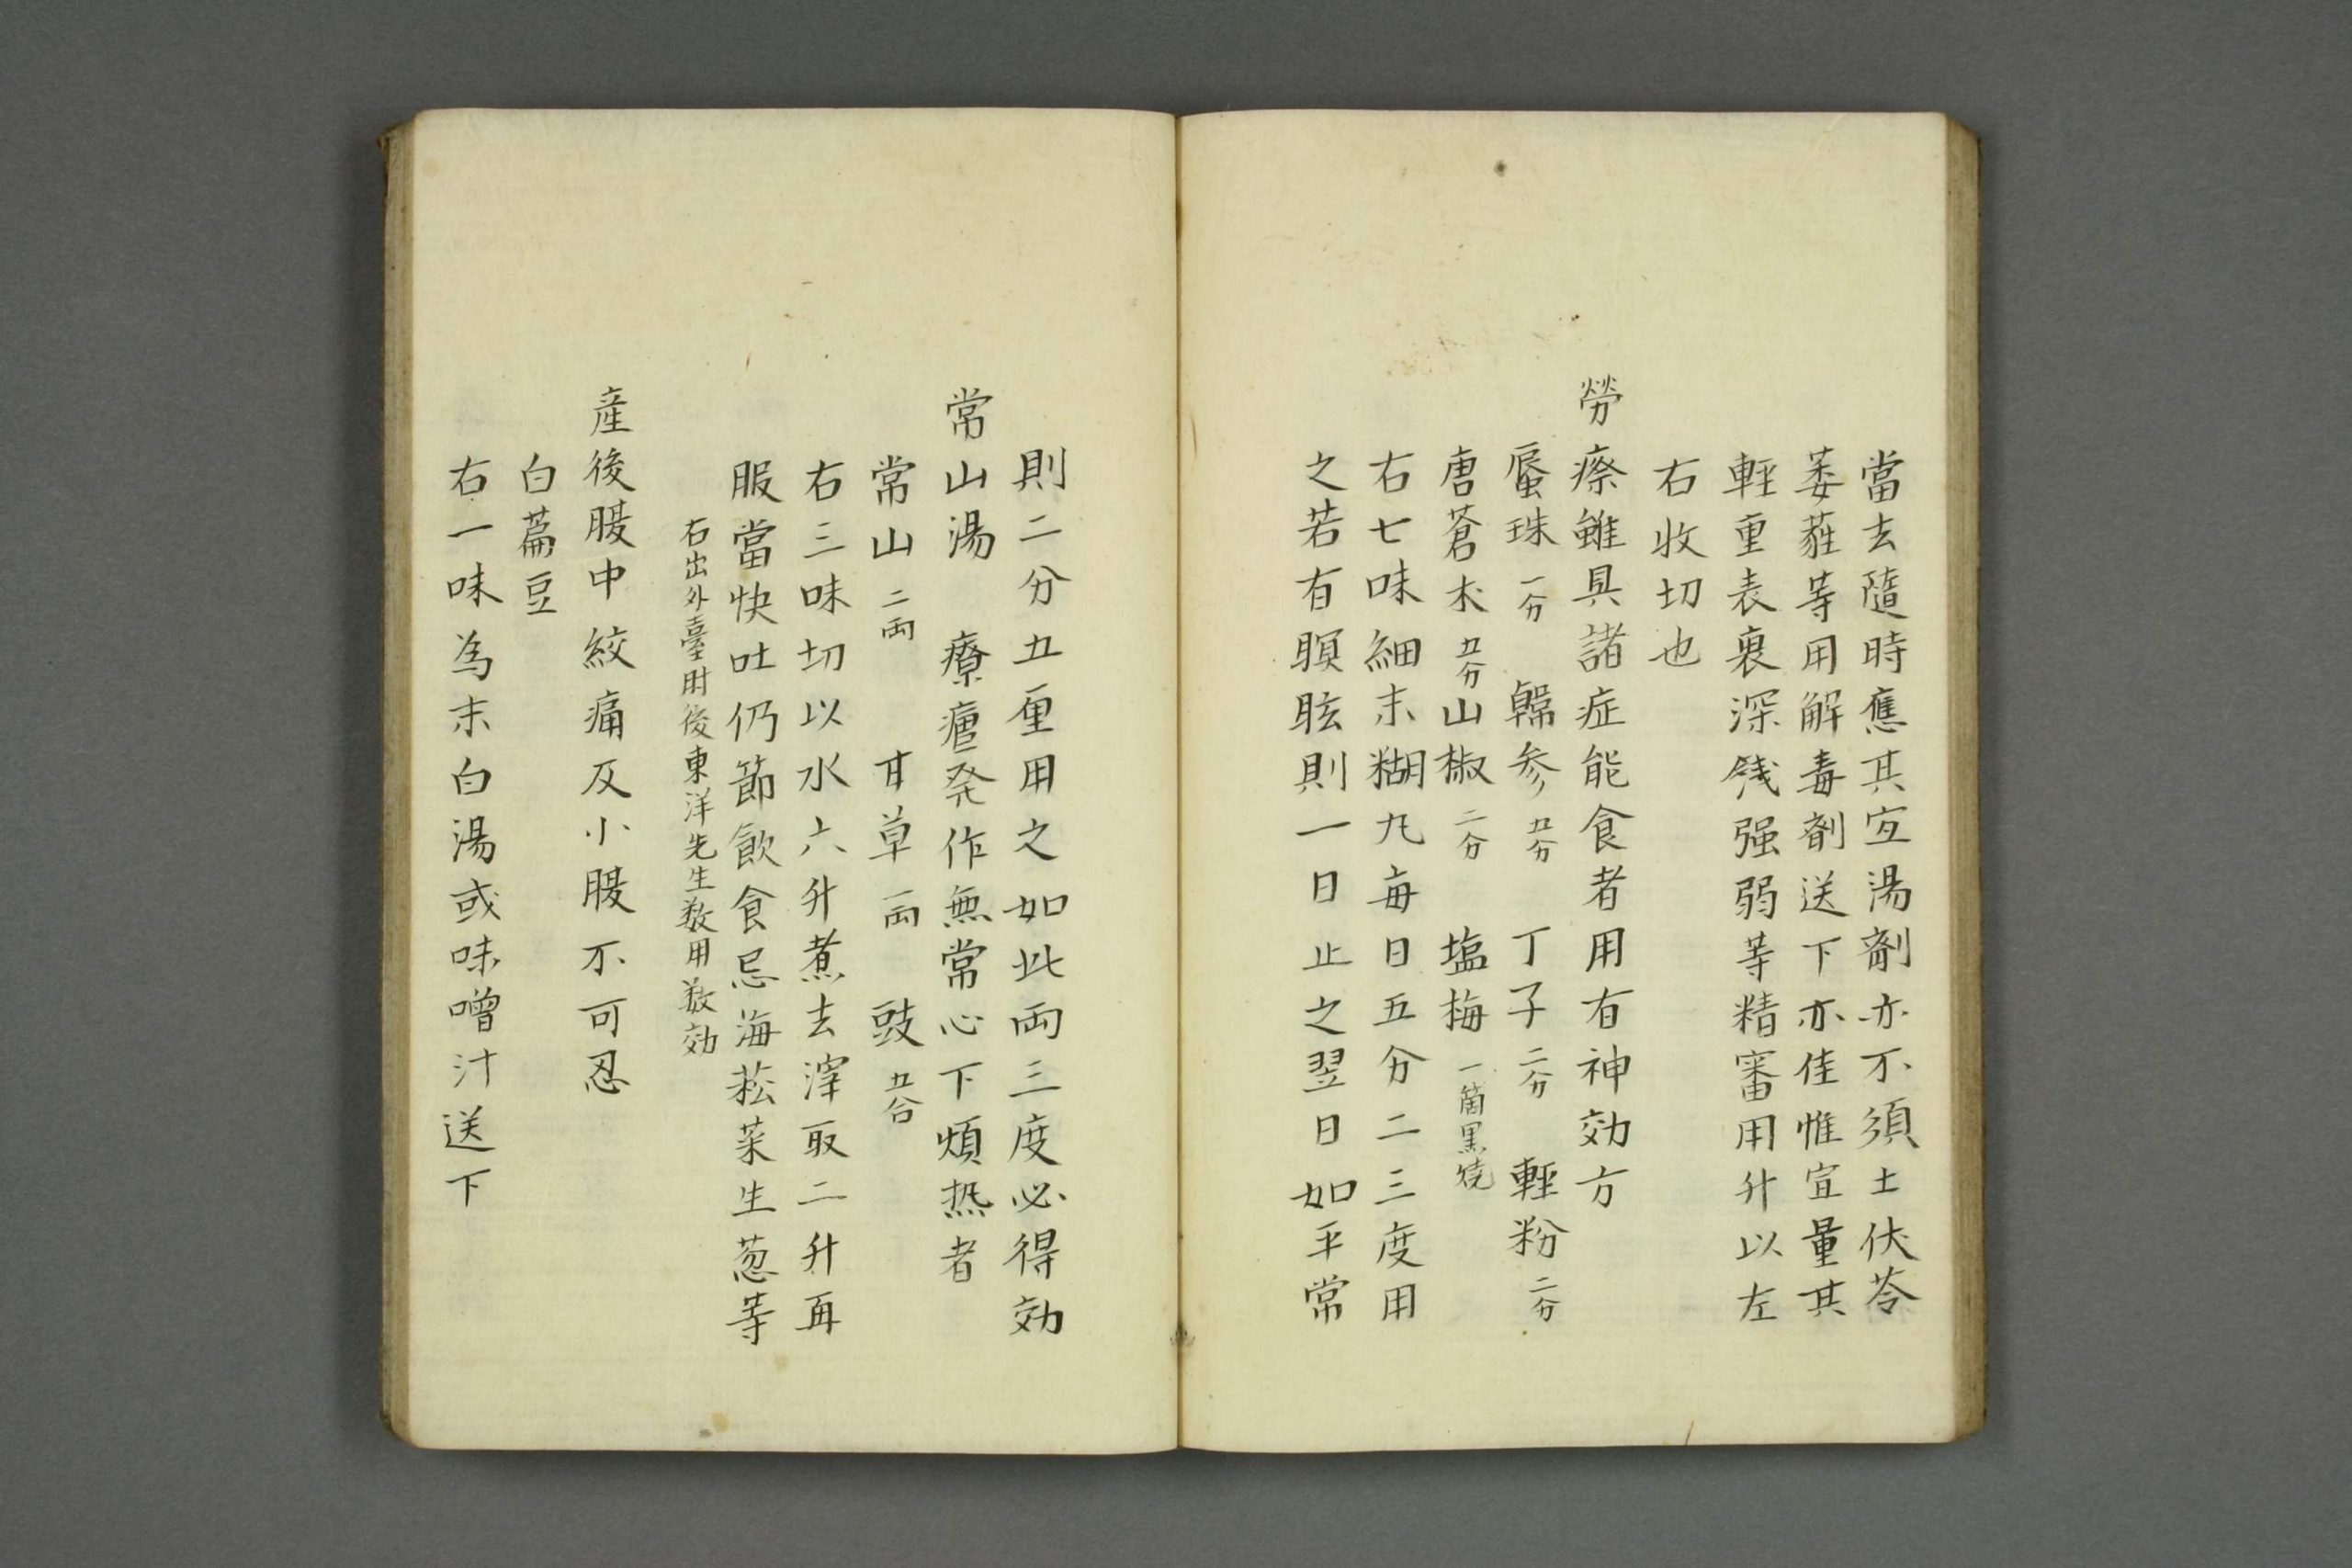 當去隨時應其宜湯劑亦不須土伏苓
萎蕤等用解毒劑送下亦佳惟宜量其
輕重表裏深淺强弱等精審用升以左
右收切也
勞瘵雖具諸症能食者用有神効方
蜃珠一分 韓参五分 丁子二分 輕粉二分
唐蒼朮五分 山椒二分 塩梅一箇黒焼
右七味細末糊丸每日五分二三度用
之若有瞑眩則一日止之翌日如平常
則二分五厘用之如此両三度必得効
常山湯 療瘧発作無常心下煩热者
常山二両 甘草一両 豉五合
右三味切以水六升煮去滓取二升再
服當快吐仍節飲食忌海菘菜生葱等
右出外臺肘後東洋先生数用数効
産後腹中絞痛及小腹不可忍
白萹豆
右一味為末白湯或味噌汁送下